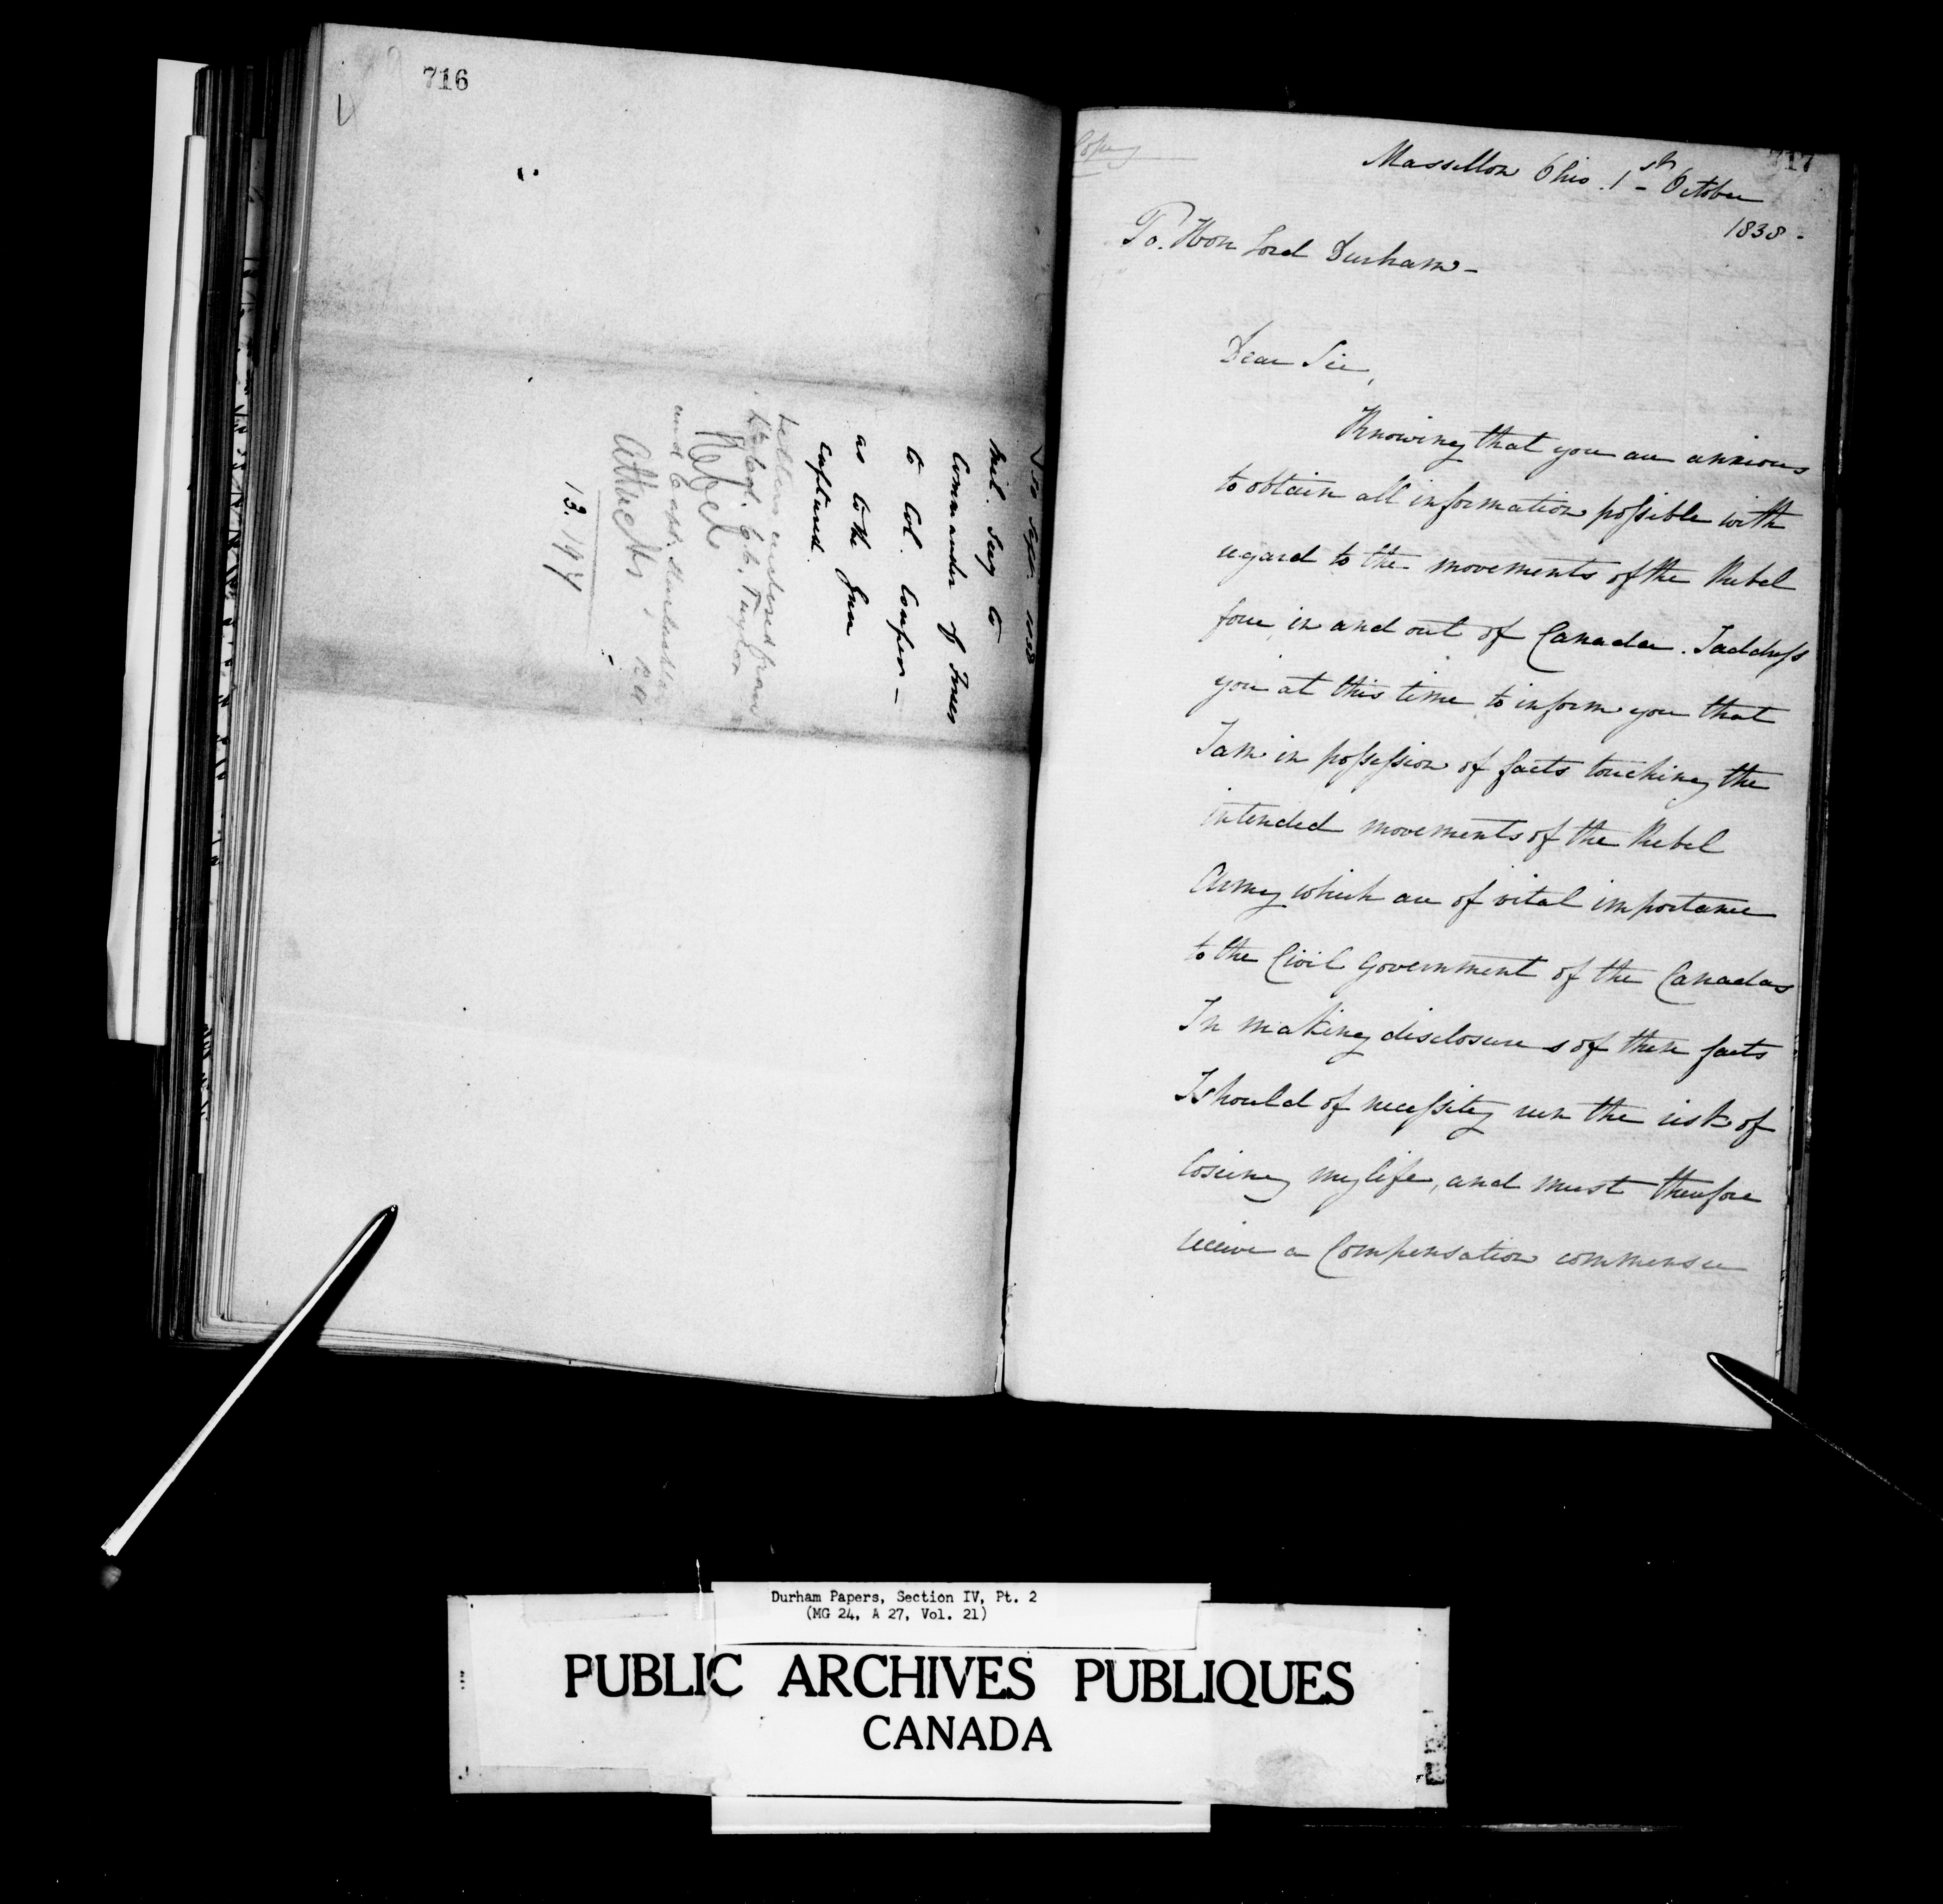 716
Mil. Secy to
Commander of Forces
to Col. Couper —
as to the Gun
captured.
Letters enclosed from
Rebel
and Capt.
Attacks
13.
Copy
717
Massillon Ohio. 1st October
1838 -
To. Hon Lord Durham -
Dear Sir,
Knowing that you are anxious
to obtain all information possible with
regard to the movements of the Rebel
force, in and out of Canada. I address
you at this time to inform you that
I am in possession of facts touching the
intended movements of the Rebel
Army which are of vital importance
to the Civil Government of the Canadas
In making disclosures of these facts
I should of necessity run the risk of
loseing my life, and must therefore
receive a Compensation commensu
Durham Papers, Section IV, Pt. 2
(MG 24, A 27, Vol. 21)
PUBLIC ARCHIVES PUBLIQUES
CANADA